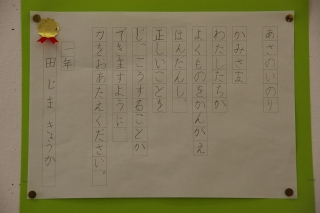 あさのいのり
かみさま
わたしたちが
よくものをかんがえ
はんだんし、
正しいことを
じっこうすることが
できますように
力をおあたえください。
一年
田じま きょうか